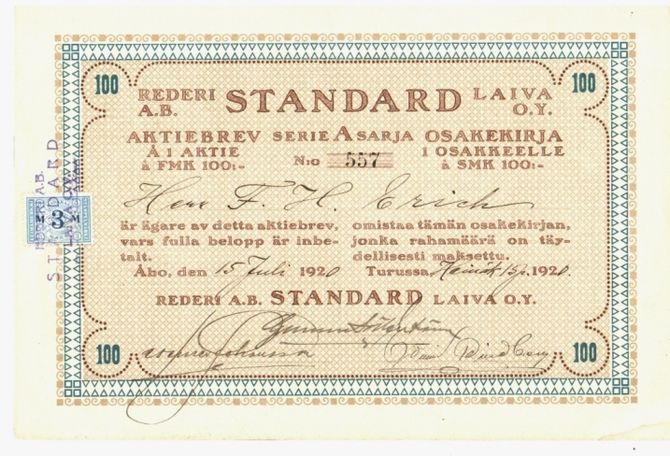 100 100
REDERI A.B. STANDARD LAIVA O.Y.
AKTIEBREV SERIE A SARJA OSAKEKIRJA
Å 1 AKTIE N:o 557 1 OSAKKEELLE
à FMK 100:- à SMK 100:-
Herr F. H. Erich
är ägare av detta aktiebrev,
vars fulla belopp är inbe-
talt.
Åbo, den 15 Juli 1920
omistaa tämän osakekirjan,
jonka rahamäärä on täy-
dellisesti maksettu.
Turussa, 15 p. 1920.
REDERI A.B. STANDARD LAIVA O.Y.
100 100
M 3 M
A.B.
STANDARD